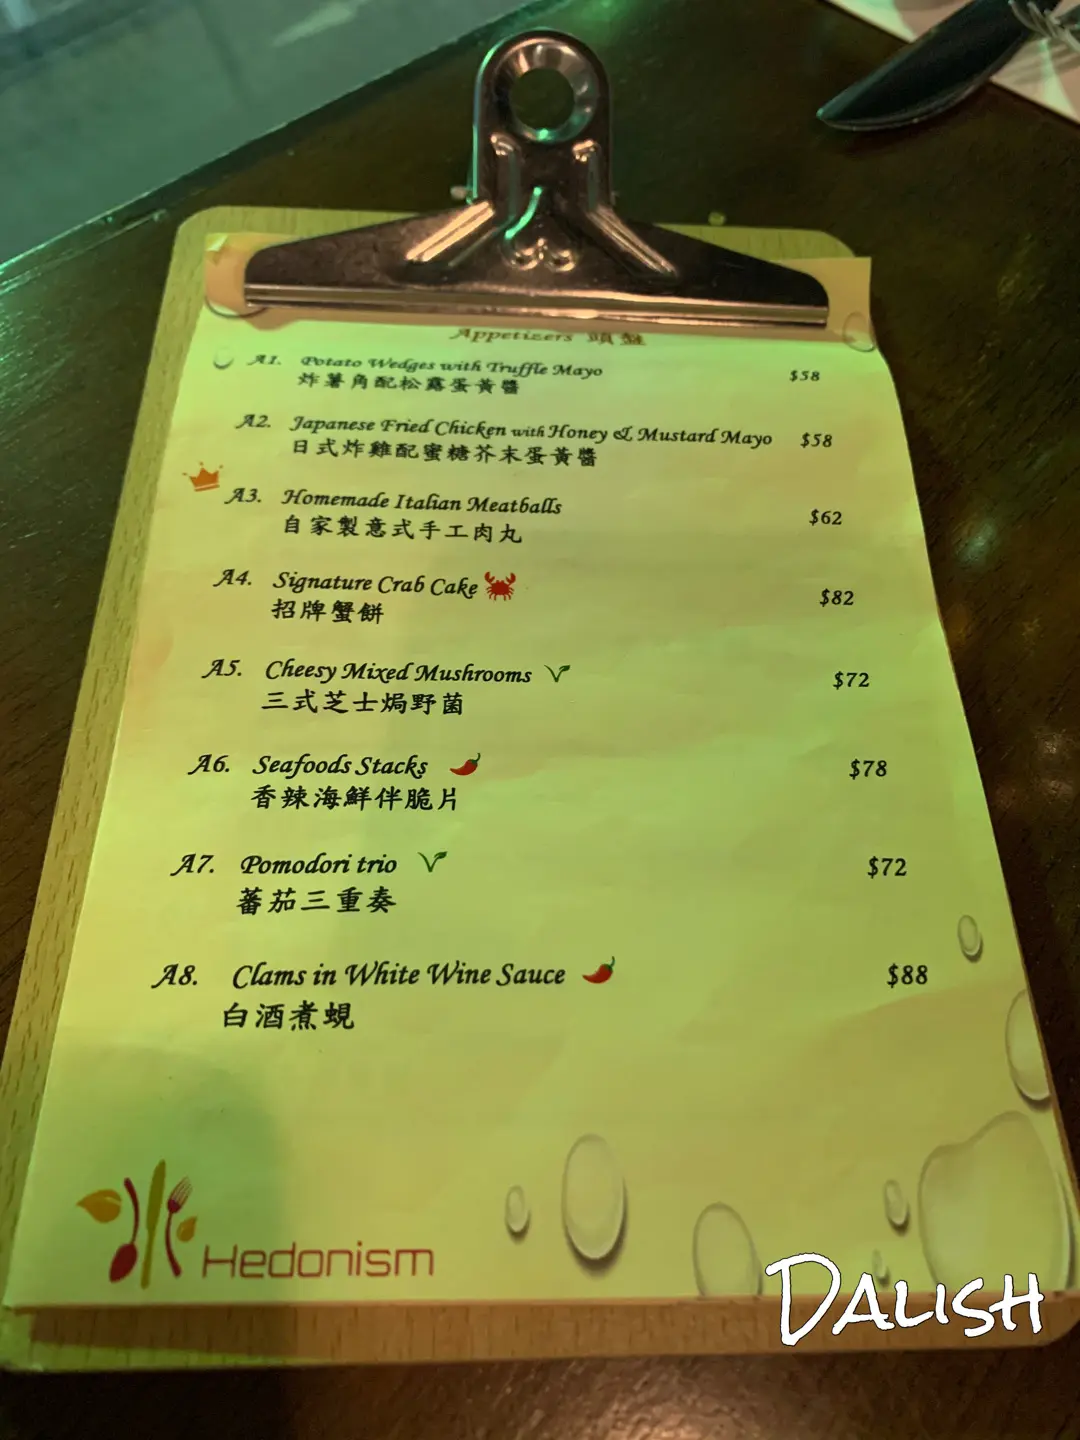 Appetizers 頭盤
A1. Potato Wedges with Truffle Mayo $58
炸薯角配松露蛋黃醬
A2. Japanese Fried Chicken with Honey & Mustard Mayo $58
日式炸雞配蜜糖芥末蛋黃醬
A3. Homemade Italian Meatballs $62
自家製意式手工肉丸
A4. Signature Crab Cake $82
招牌蟹餅
A5. Cheesy Mixed Mushrooms $72
三式芝士焗野菌
A6. Seafoods Stacks $78
香辣海鮮伴脆片
A7. Pomodori trio $72
蕃茄三重奏
A8. Clams in White Wine Sauce $88
白酒煮蜆
Hedonism
Dalish